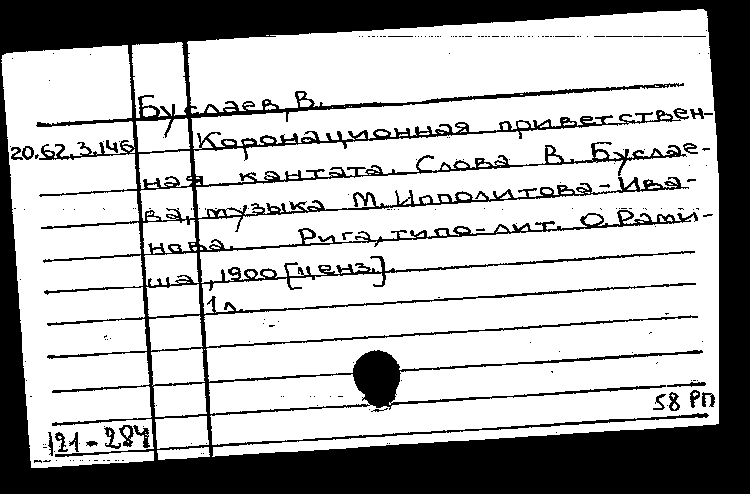 Буслаев, В.
20.62.3.146 Коронационная приветствен-
ная кантата. Слова В. Буслае-
ва, музыка М. Ипполитова-Ива-
нова. Рига, типо-лит. О. Рами-
ша, 1900 [ценз.].
1 л.
58 РП
121-284